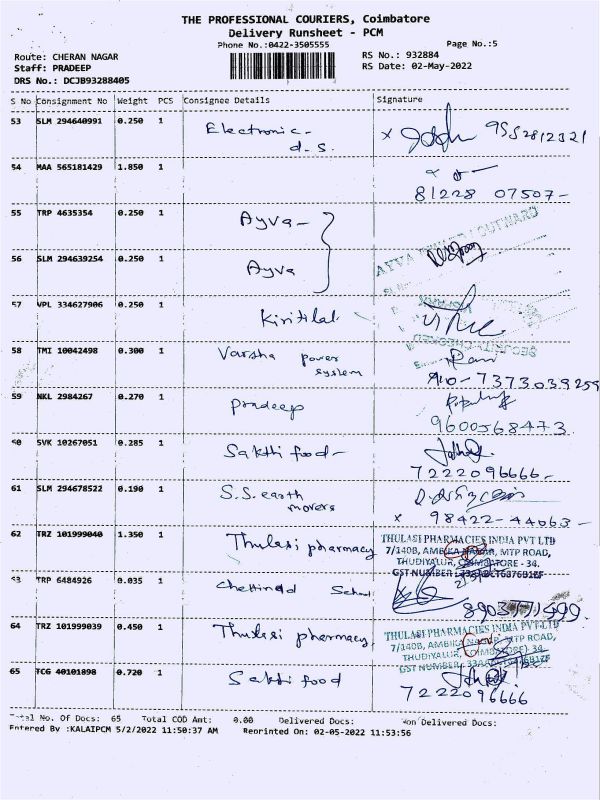 THE PROFESSIONAL COURIERS, Coimbatore
Delivery Runsheet - PCM
Phone No.:0422-3505555
Page No.:5
Route: CHERAN NAGAR
RS No.: 932884
Staff: PRADEEP
RS Date: 02-May-2022
DRS No.: DCJB93288405
S No Consignment No Weight PCS Consignee Details Signature
53 SLM 294640991 0.250 1 Electronic- 9552812321
d.s.
54 MAA 565181429 1.850 1
81228 07507-
55 TRP 4635354 0.250 1 Ayva-
56 SLM 294639254 0.250 1 Ayva
57 VPL 334627906 0.250 1 Kiritilal
58 TMI 10042498 0.300 1 Varsha power system Rani
7373039259
59 NKL 2984267 0.270 1 pradeep
9600568473
60 SVK 10267051 0.285 1 Sakthi food-
7222096666-
61 SLM 294678522 0.190 1 S.S. earth movers
x 98422-44063-
62 TRZ 101999040 1.350 1 Thulasi pharmacy THULASI PHARMACIES INDIA PVT LTD
7/140B, AMBIKA NAGAR, MTP ROAD,
THUDIYALUR, COIMBATORE - 34.
GST NUMBER
63 TRP 6484926 0.035 1 chettinad School
64 TRZ 101999039 0.450 1 Thulasi pharmacy THULASI PHARMACIES INDIA PVT LTD
7/140B, AMBIKA NAGAR, MTP ROAD,
THUDIYALUR, COIMBATORE - 34.
GST NUMBER
65 TCG 40101898 0.720 1 Sakthi food
7222096666
Total No. Of Docs: 65 Total COD Amt: 0.00 Delivered Docs: Non Delivered Docs:
Entered By :KALAIPCM 5/2/2022 11:50:37 AM Reprinted On: 02-05-2022 11:53:56